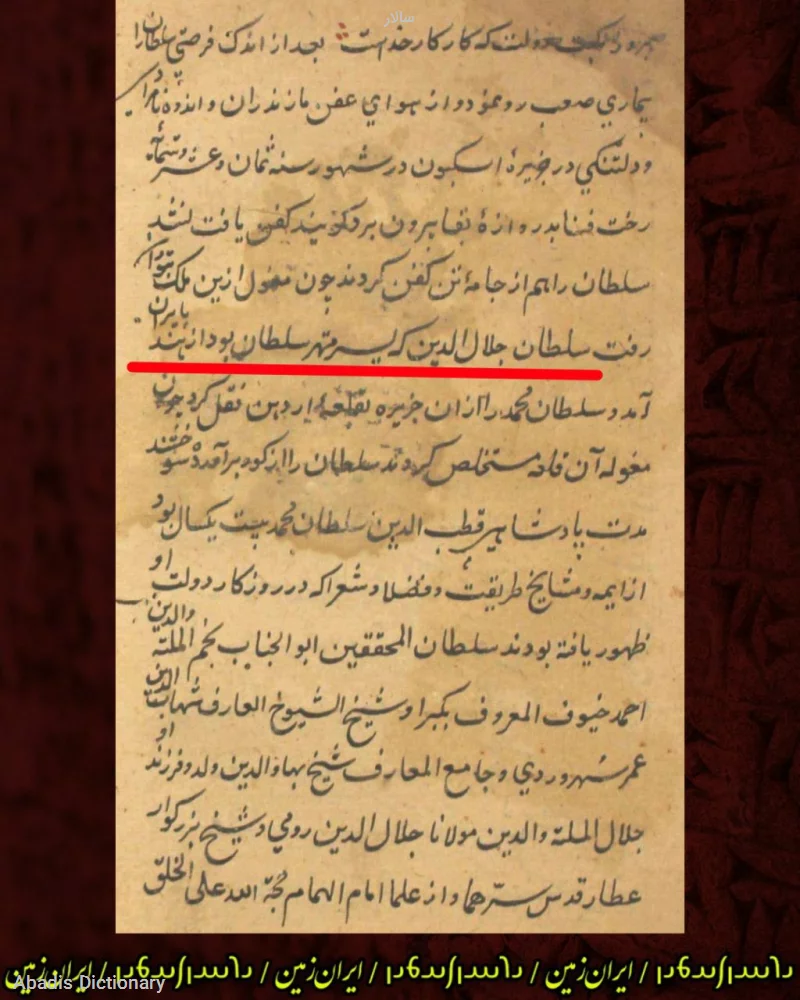 سالار
دولت که کار کار خداست بعد از اندک فرصتی سلطان را
بیماری صعب رو نمود و از هوای عفن مازندران و اندوه
و دلتنکی در جزیرهٔ اسکبون در شهور سنه ثمان و عشر و ستمایه
رخت فنا بدروازهٔ بقا بیرون برد کفن یافت نشد
سلطان را هم از جامهٔ تن کفن کردند چون مغول ازین ملک
رفت سلطان جلال الدین که پسر مهتر سلطان بود از هند بایران
آمد و سلطان محمد را از آن جزیره بقلعهٔ اردهن نقل کرد چون
مغوله آن قلعه مستخلص کردند سلطان را از کور برآورده سوختند
مدت پادشاهی قطب الدین سلطان محمد بیست یکسال بود
از ایمه و مشایخ طریقت و فضلا و شعرا که در روزکار دولت او
ظهور یافته بودند سلطان المحققین ابو الجناب نجم الملة والدین
احمد خیوف المعروف بکبرا و شیخ الشیوخ العارف شهاب الدین
عمر سهروردی و جامع المعارف شیخ بهاء الدین ولد و فرزند او
جلال الملة والدین مولانا جلال الدین رومی و شیخ بزرکوار
عطار قدس سرهما و از علما امام الهمام حجة الله علی الخلق
ایران‌زمین / ایران‌زمین / ایران‌زمین
Abadis Dictionary